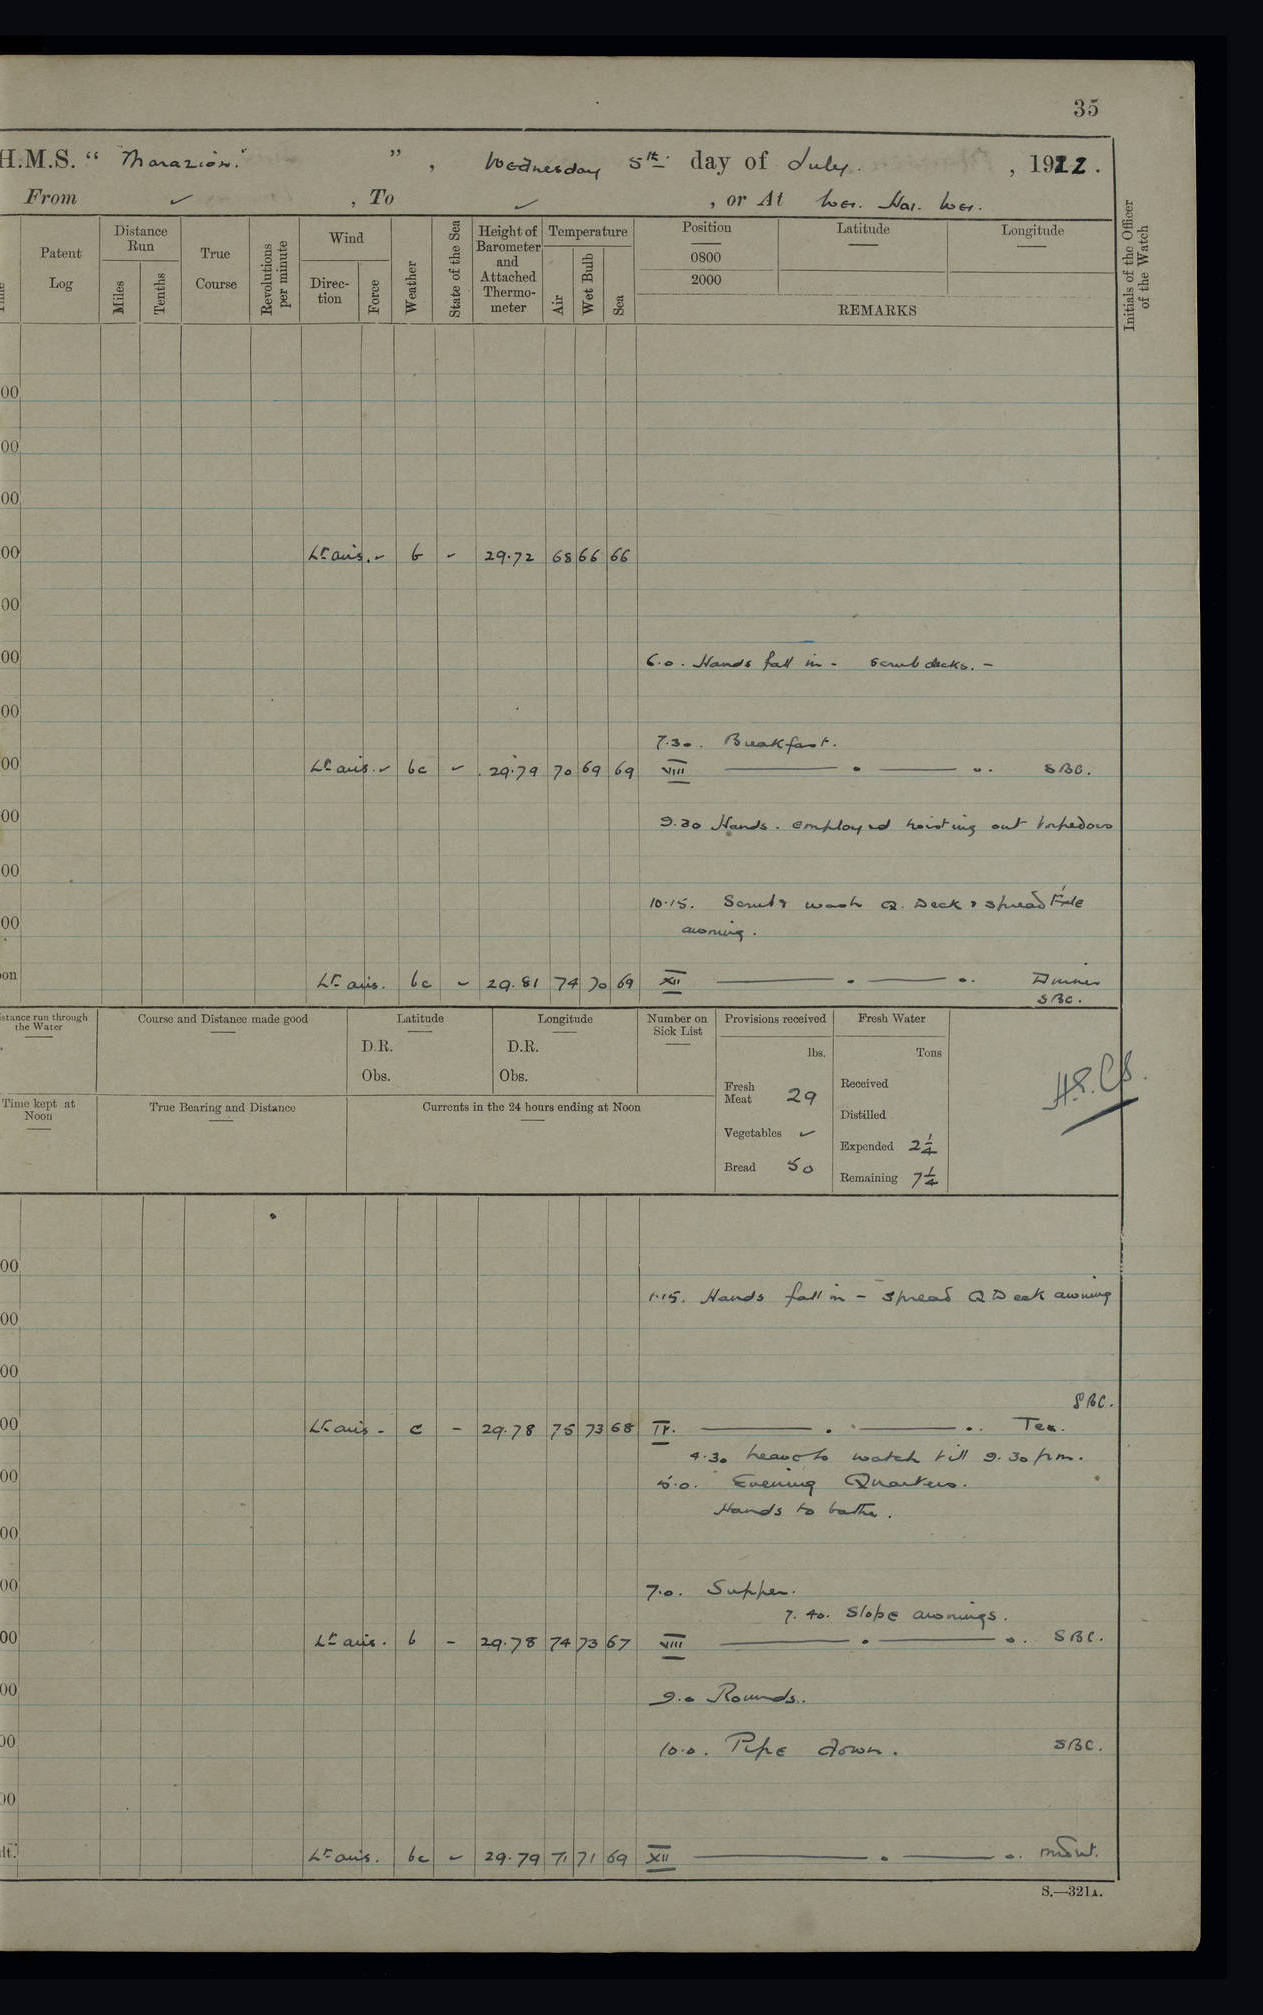 35
H.M.S. “ Marazion. ” , Wednesday 5th day of July. , 1922.
From ✓ , To ✓ , or At Wei. Hai. Wei.
Patent Log
Distance Run
Miles
Tenths
True Course
Revolutions per minute
Wind
Direc-tion
Force
Weather
State of the Sea
Height of Barometer and Attached Thermo-meter
Temperature
Air
Wet Bulb
Sea
Position
0800
2000
Latitude
Longitude
REMARKS
Initials of the Officer of the Watch
00
00
00
00 Lt airs. ✓ b ✓ 29.72 68 66 66
00
00 6.0. Hands fall in - scrub decks. -
00
7.30. Breakfast.
00 Lt airs. ✓ bc ✓ 29.79 70 69 69 VIII SBC.
00 9.30 Hands. employed hoisting out torpedoes
00
10.15. Scrub & wash Q. Deck & spread
00 awning.
on Lt airs. bc ✓ 29.81 74 70 69 XII Dinner
SBC.
istance run through the Water
Course and Distance made good
Latitude
D.R.
Obs.
Longitude
D.R.
Obs.
Number on Sick List
Provisions received
lbs.
Fresh Meat 29
Vegetables ✓
Bread 50
Fresh Water
Tons
Received
Distilled
Expended 2 1/4
Remaining 7 1/4
Time kept at Noon
True Bearing and Distance
Currents in the 24 hours ending at Noon
00
1.15. Hands fall in - spread Q Deck awning
00
00
SBC.
00 Lt airs - c - 29.78 75 73 68 IV. Tea.
4.30 hands to watch till 9.30 p.m.
00 5.0. Evening Quarters.
Hands to bathe.
00
00 7.0. Supper.
7.40. Slope awnings.
00 Lt airs. b - 29.78 74 73 67 VIII SBC.
00 9.0 Rounds.
00 10.0. Pipe down. SBC.
00
lt. Lt airs. bc ✓ 29.79 71 71 69 XII
S.—321A.